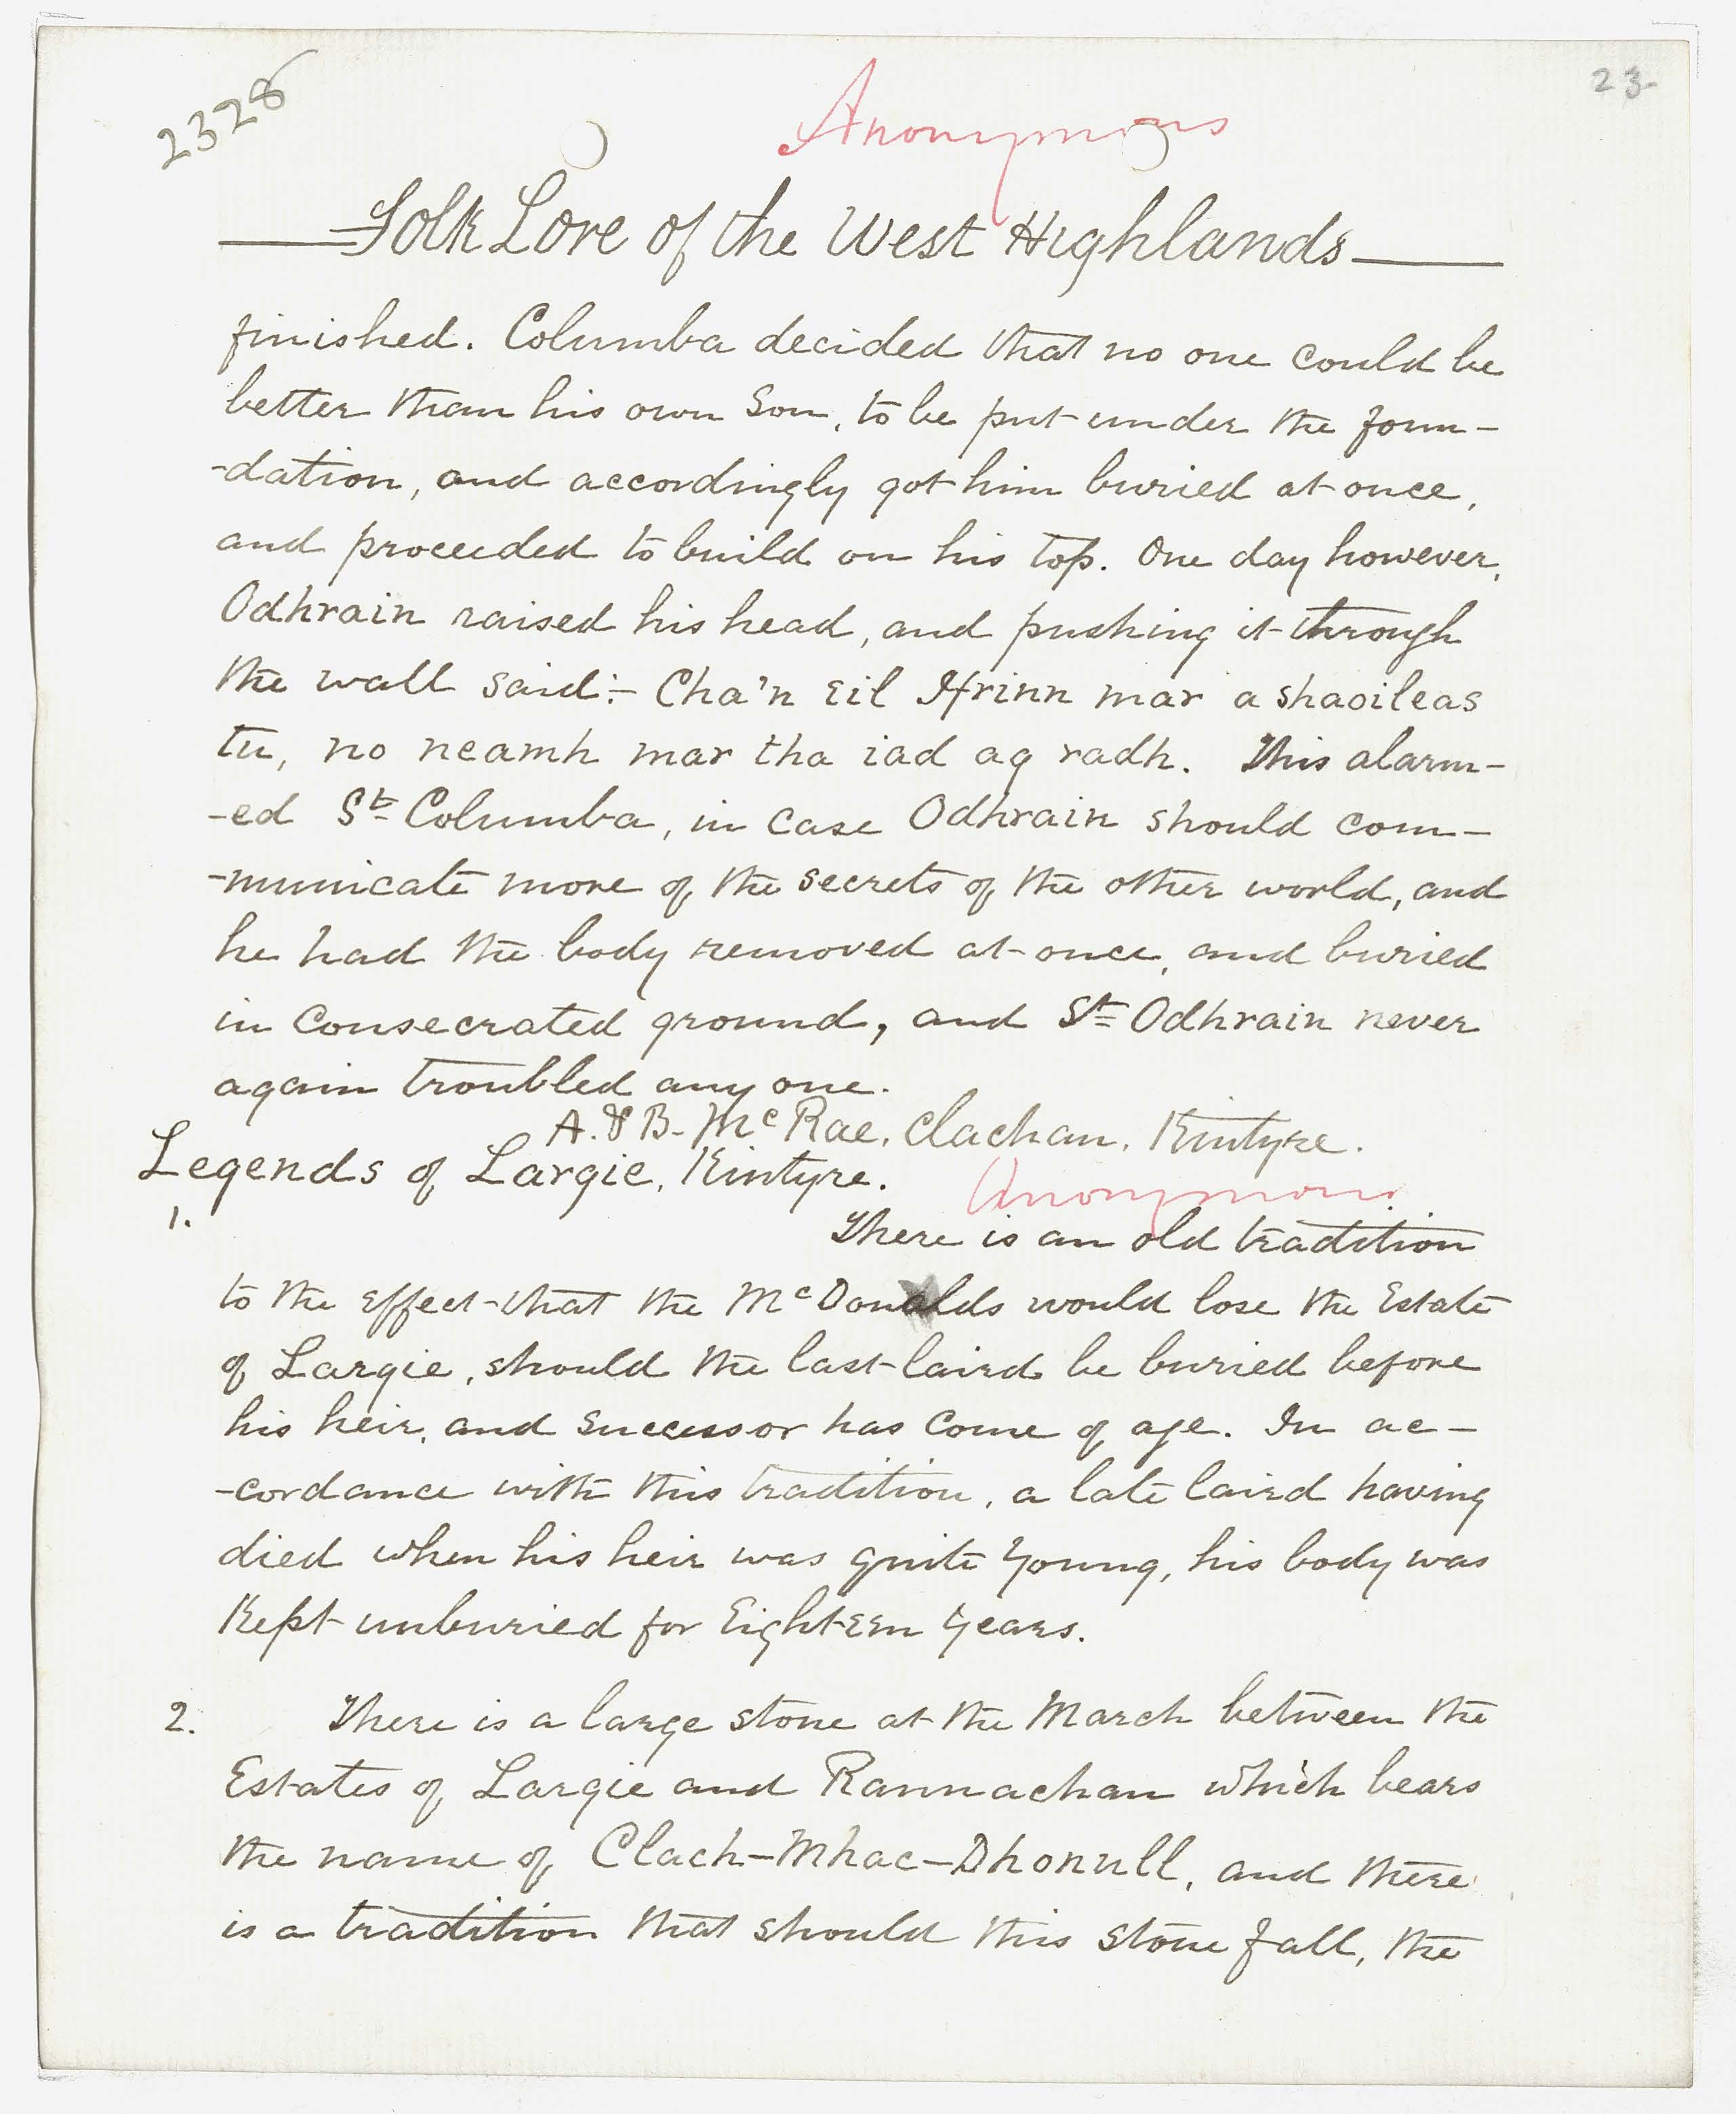 2328
23
Anonymous
Folk Lore of the West Highlands
finished. Columba decided that no one could be
better than his own Son, to be put under the foun-
-dation, and accordingly got him buried at once,
and proceeded to build on his top. One day however,
Odhrain raised his head, and pushing it through
the wall said:- Cha'n eil Ifrinn mar a shaoileas
tu, no neamh mar tha iad ag radh. This alarm-
-ed St. Columba, in case Odhrain should com-
-municate more of the secrets of the other world, and
he had the body removed at once, and buried
in Consecrated ground, and St. Odhrain never
again troubled any one.
A. & B. McRae, Clachan, Kintyre.
Legends of Largie, Kintyre.
Anonymous.
1.
There is an old tradition
to the effect that the McDonalds would lose the Estate
of Largie, should the last laird be buried before
his heir, and successor has come of age. In ac-
-cordance with this tradition, a late laird having
died when his heir was quite young, his body was
Kept unburied for Eighteen years.
2. There is a large stone at the March between the
Estates of Largie and Rannachan which bears
the name of Clach-Mhac-Dhonull, and there
is a tradition that should this stone fall, the